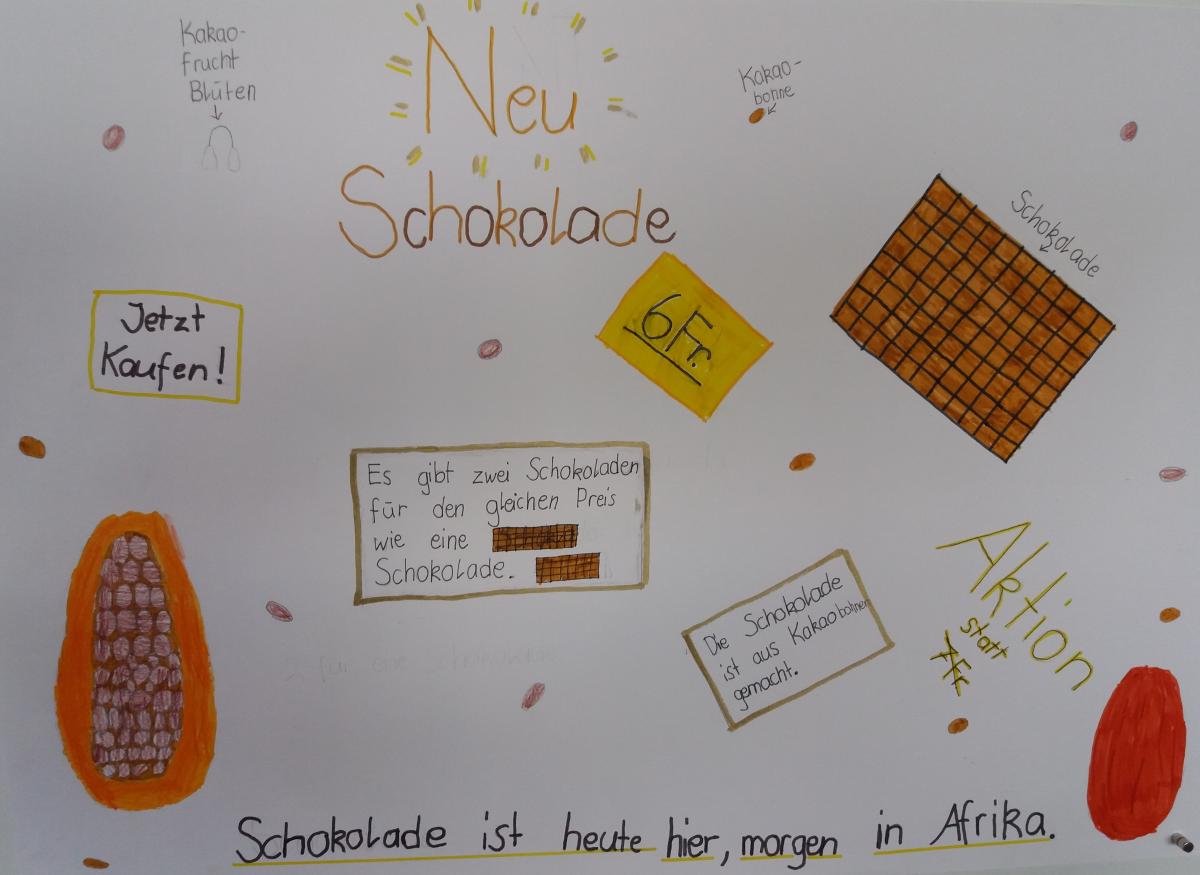 Kakao-
frucht
Blüten
Neu
Kakao-
bohne
Schokolade
Schokolade
Jetzt
Kaufen!
6 Fr.
Es gibt zwei Schokoladen
für den gleichen Preis
wie eine
Schokolade.
Die Schokolade
ist aus Kakaobohnen
gemacht.
Aktion
statt
7Fr
Schokolade ist heute hier, morgen in Afrika.